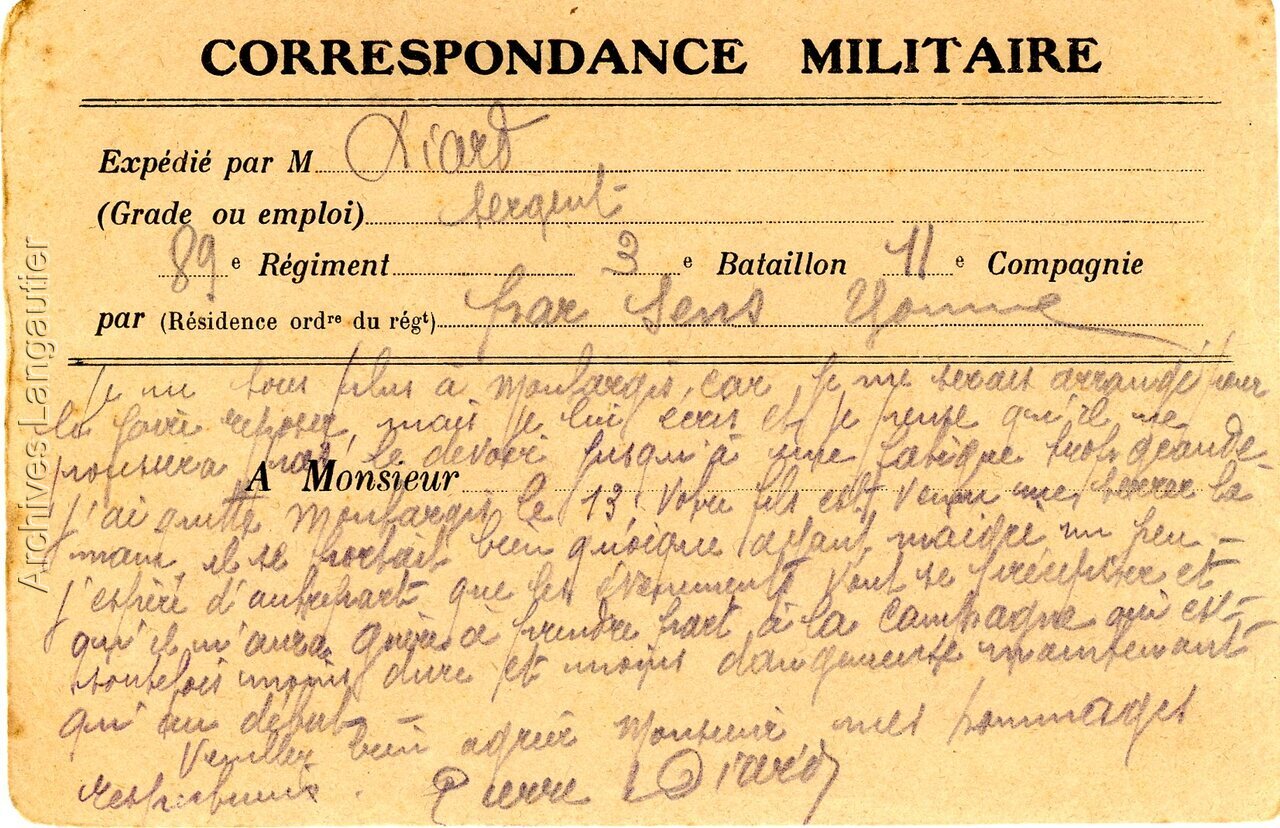 CORRESPONDANCE MILITAIRE
Expédié par M Diard
(Grade ou emploi) Sergent
89 e Régiment 3 e Bataillon 11 e Compagnie
par (Résidence ordre du régt) par Sens Yonne
Je ne suis plus à Montargis, car je me serais arrangé pour
le faire reposer, mais je lui écris et je pense qu'il ne
poussera pas le devoir jusqu'à une fatigue trop grande -
A Monsieur
J'ai quitté Montargis le 13 Votre fils est venu me serrer la
main, il se portait bien quoique ayant maigri un peu -
J'espère d'autre part que les évènements vont se précipiter et
qu'il n'aura guère à prendre part à la campagne qui est
toutefois moins dure et moins dangereuse maintenant
qu'au début -
Veuillez bien agréer Monsieur mes hommages
respectueux.
Pierre Diard
Archives Langautier